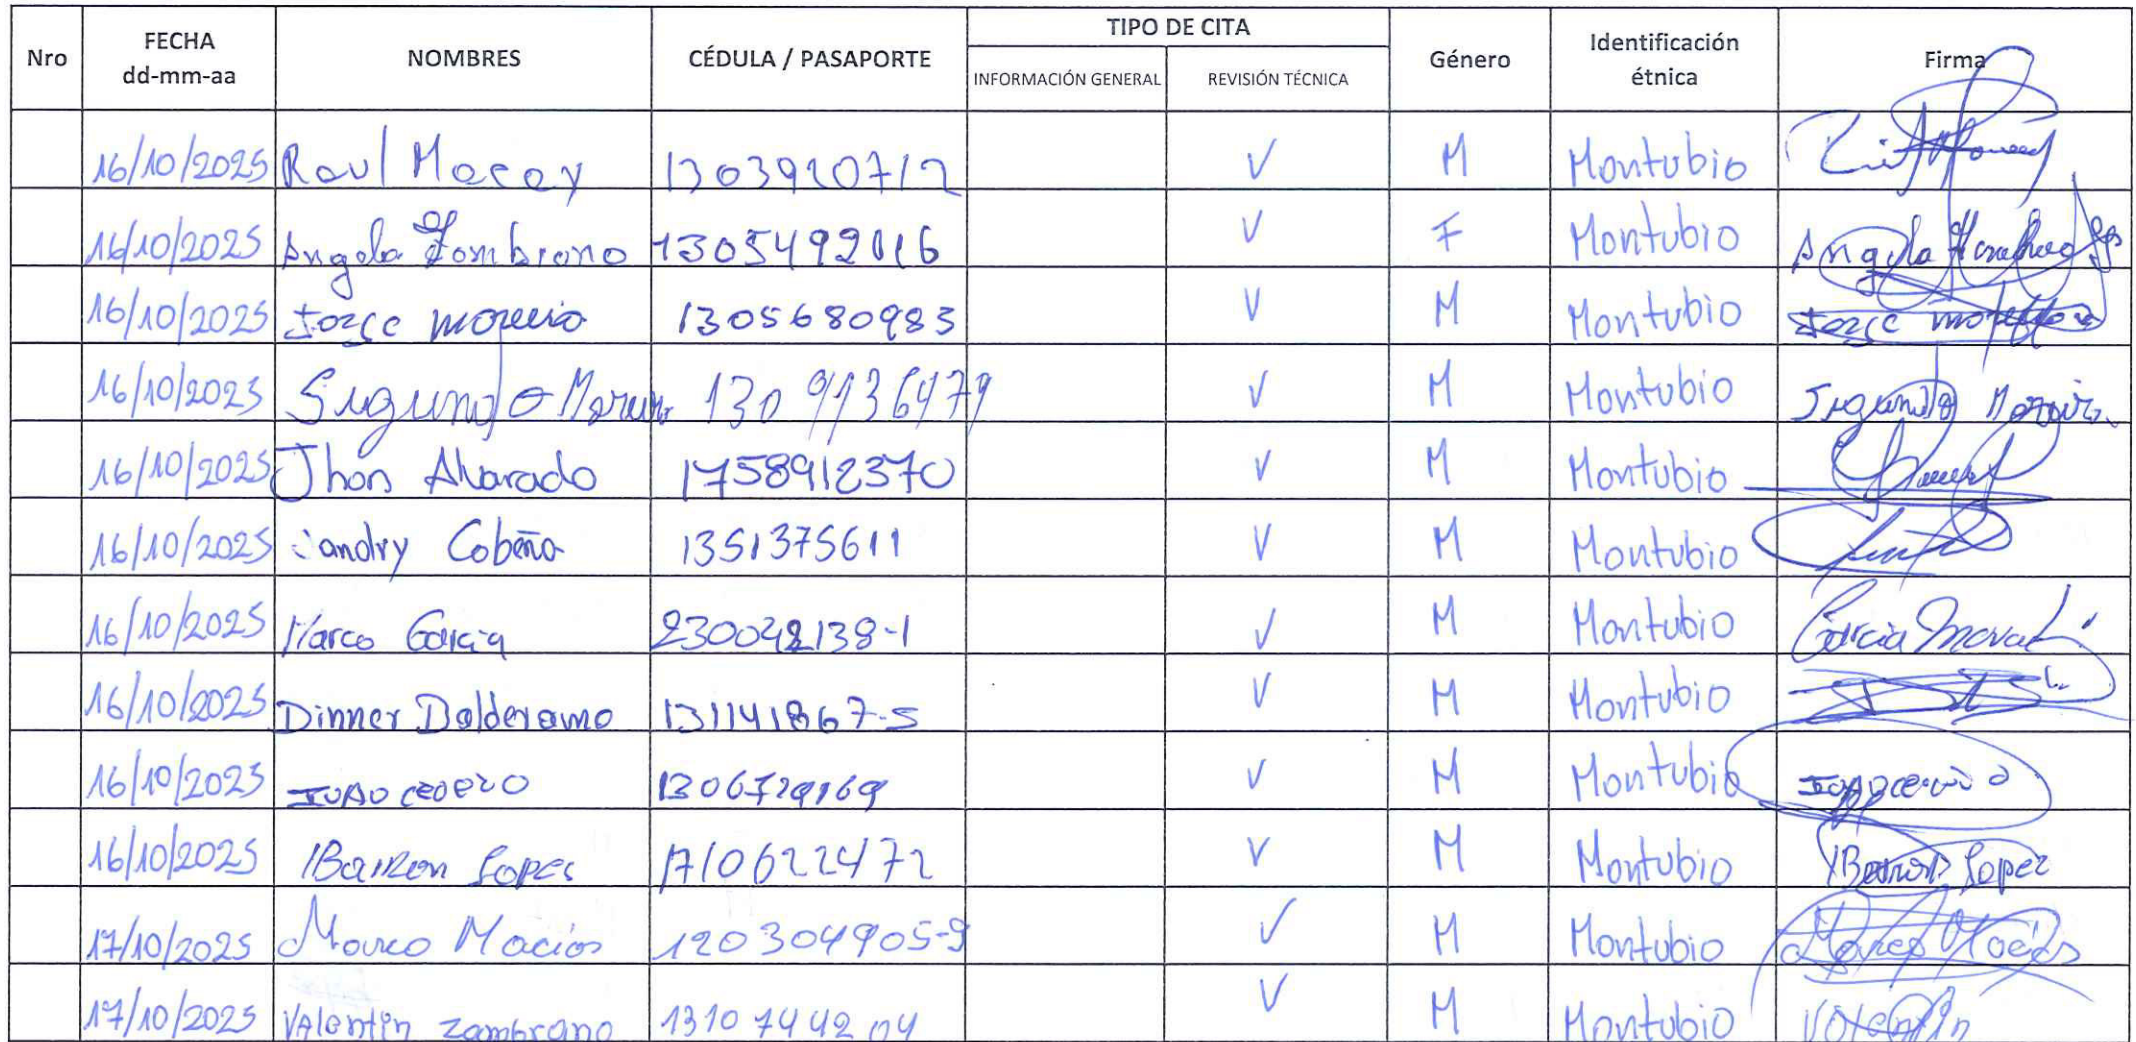 Nro FECHA dd-mm-aa NOMBRES CÉDULA / PASAPORTE TIPO DE CITA INFORMACIÓN GENERAL REVISIÓN TÉCNICA Género Identificación étnica Firma
16/10/2025 Raul Macay 1303920712 V M Montubio
16/10/2025 Angela Zambrano 1305492016 V F Montubio Angela Zambrano
16/10/2025 Jorge moreira 1305680983 V M Montubio Jorge moreira
16/10/2025 Segundo Moreira 1309136479 V M Montubio Segundo Moreira
16/10/2025 Jhon Alvarado 1758912370 V M Montubio
16/10/2025 Jandry Cobeña 1351375611 V M Montubio
16/10/2025 Marco Garcia 230042138-1 V M Montubio Garcia
16/10/2025 Dinner Balderamo 131141867-5 V M Montubio
16/10/2025 cedeño 1306729169 V M Montubio
16/10/2025 Lopez 1710622472 V M Montubio Lopez
17/10/2025 Marco Macias 120304905-9 V M Montubio Marco Macias
17/10/2025 Valentin Zambrano 1310744204 V M Montubio Valentin